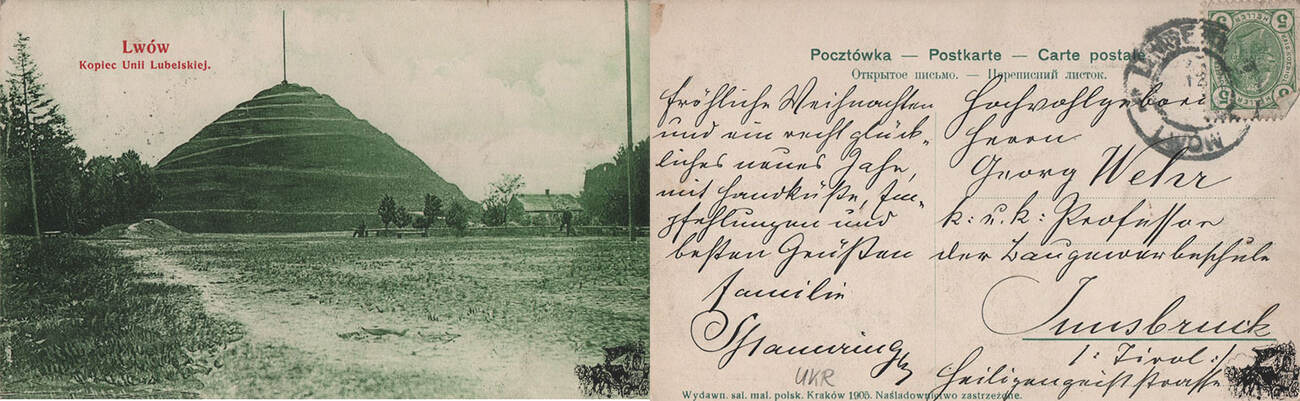 Lwów
Kopiec Unii Lubelskiej.
Pocztówka — Postkarte — Carte postale
Открытое письмо. — Переписний листок.
fröhliche Weihnachten
und ein recht glück-
liches neues Jahr,
mit Handküße, Em-
pfehlungen und
besten Grüßen
Familie
Hochwohlgeboren
Herrn
Georg Wehr
k: u: k: Professor
der Baugewerbeschule
Innsbruck
/: Tirol :/
Heiligengeiststrasse
UKR
Wydawn. sal. mal. polsk. Kraków 1905. Naśladownictwo zastrzeżone.
5
HELLER
5